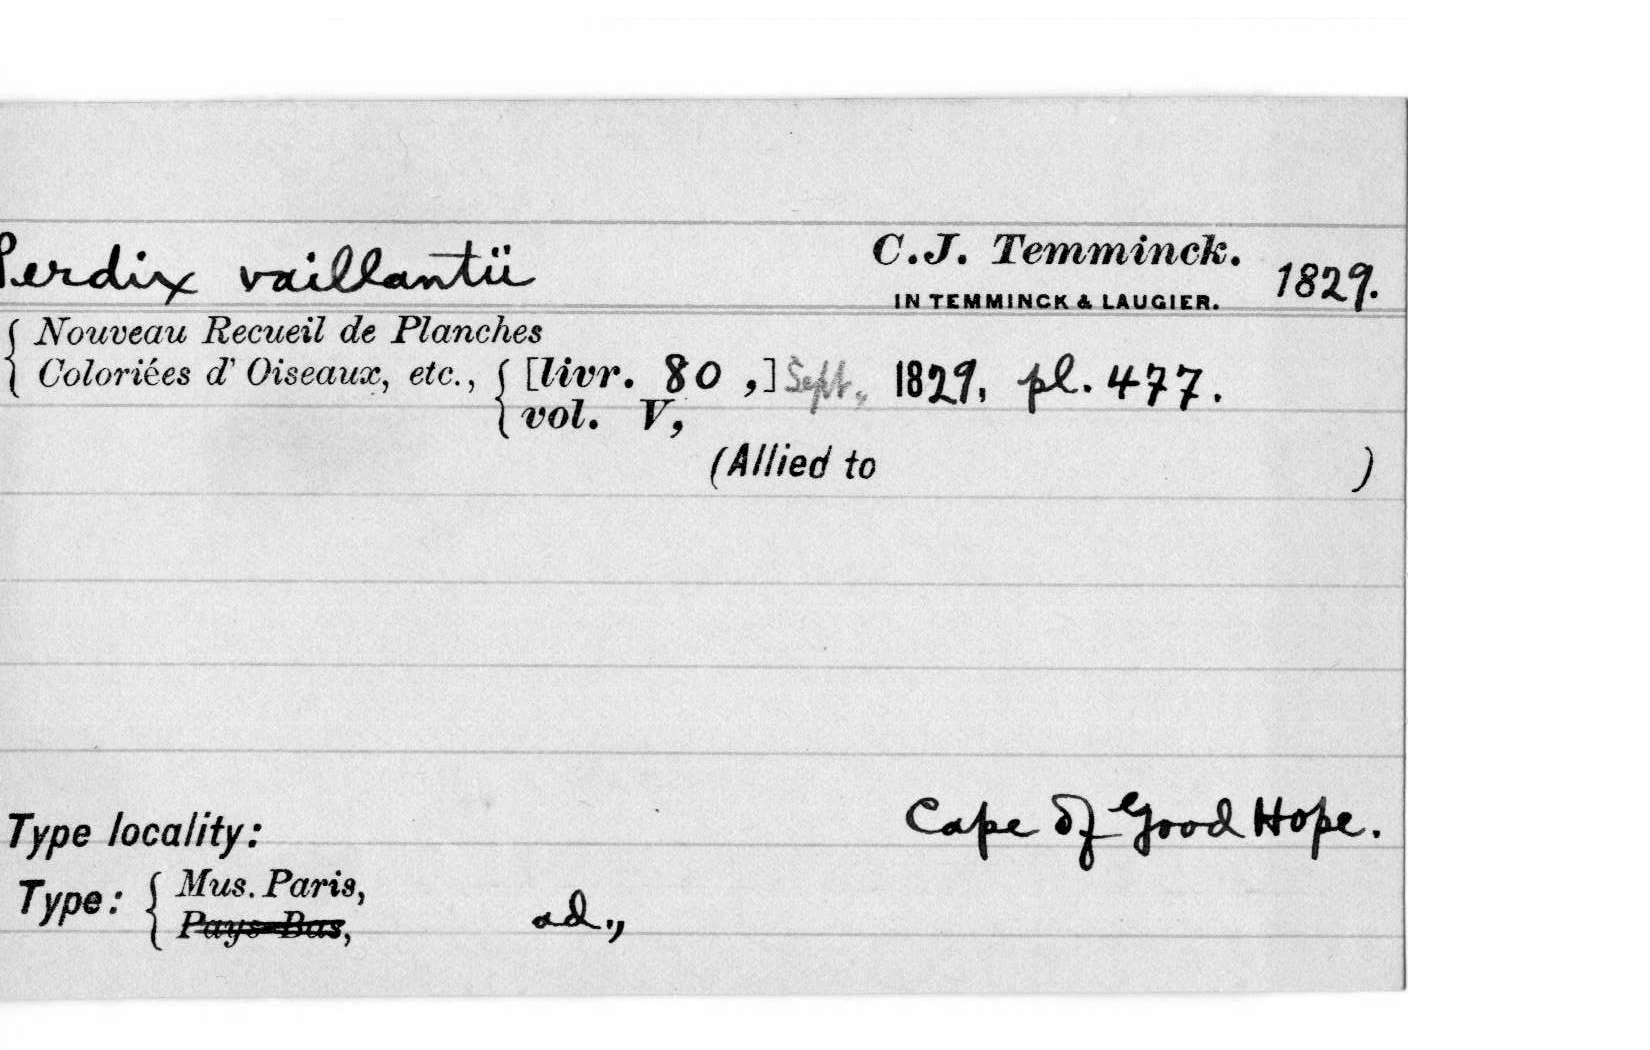 Perdix vaillantii C.J. Temminck. 1829.
IN TEMMINCK & LAUGIER.
Nouveau Recueil de Planches
Coloriées d' Oiseaux, etc., [livr. 80 ,] Sept., 1829, pl. 477.
vol. V,
(Allied to )
Type locality: Cape of Good Hope.
Type: Mus. Paris,
Pays-Bas, ad.,